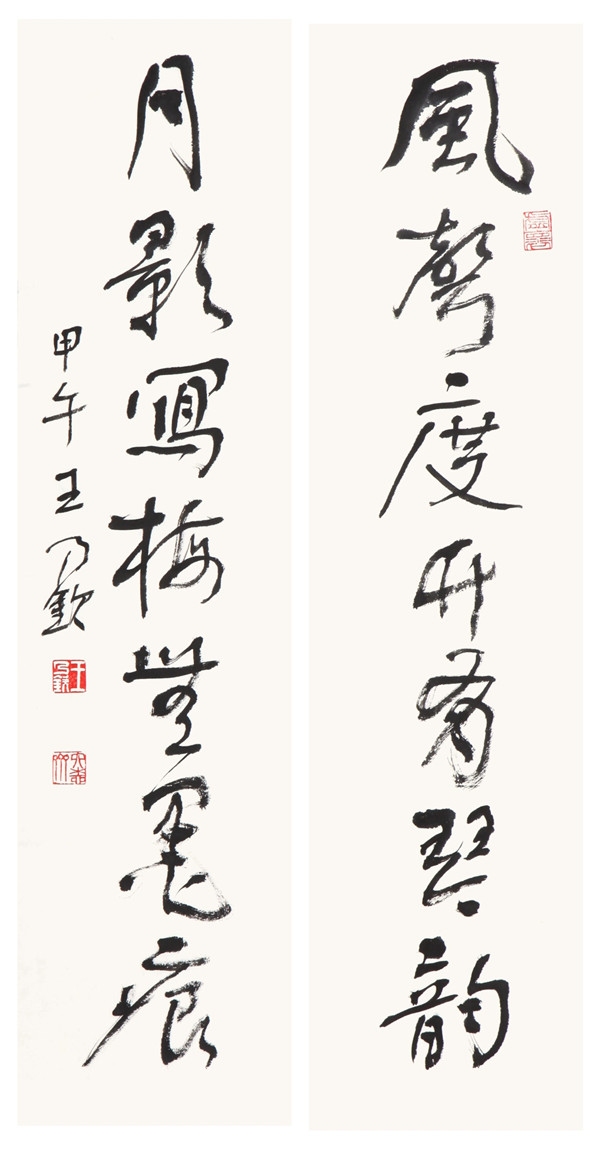 風聲度竹有琴韻
月影寫梅無墨痕
甲午王乃欽